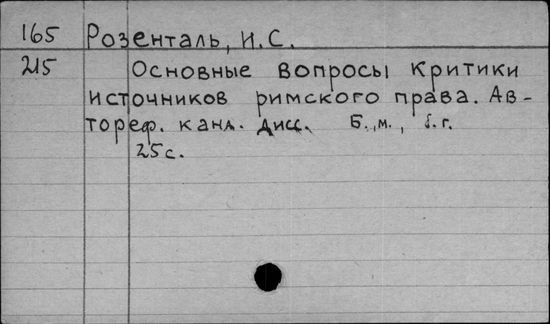 165 Розенталь, И.С.
215 Основные вопросы критики
источников римского права. Ав-
тореф. канд. дисс. Б.м., б.г.
25с.